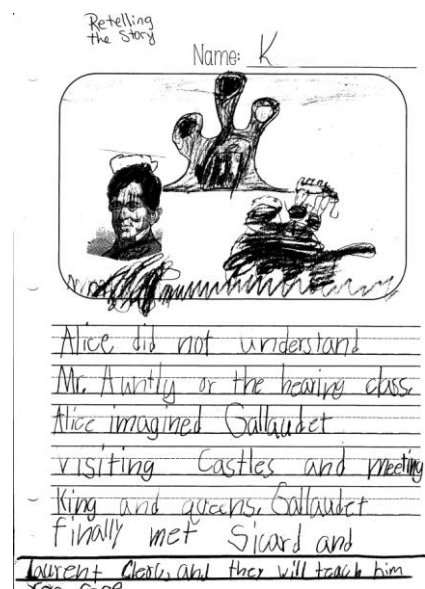 Retelling
the Story
Name: K
Alice did not understand
Mr. Huntly or the hearing class.
Alice imagined Gallaudet
visiting Castles and meeting
King and queens. Gallaudet
finally met Sicard and
Laurent Clerc, and they will teach him